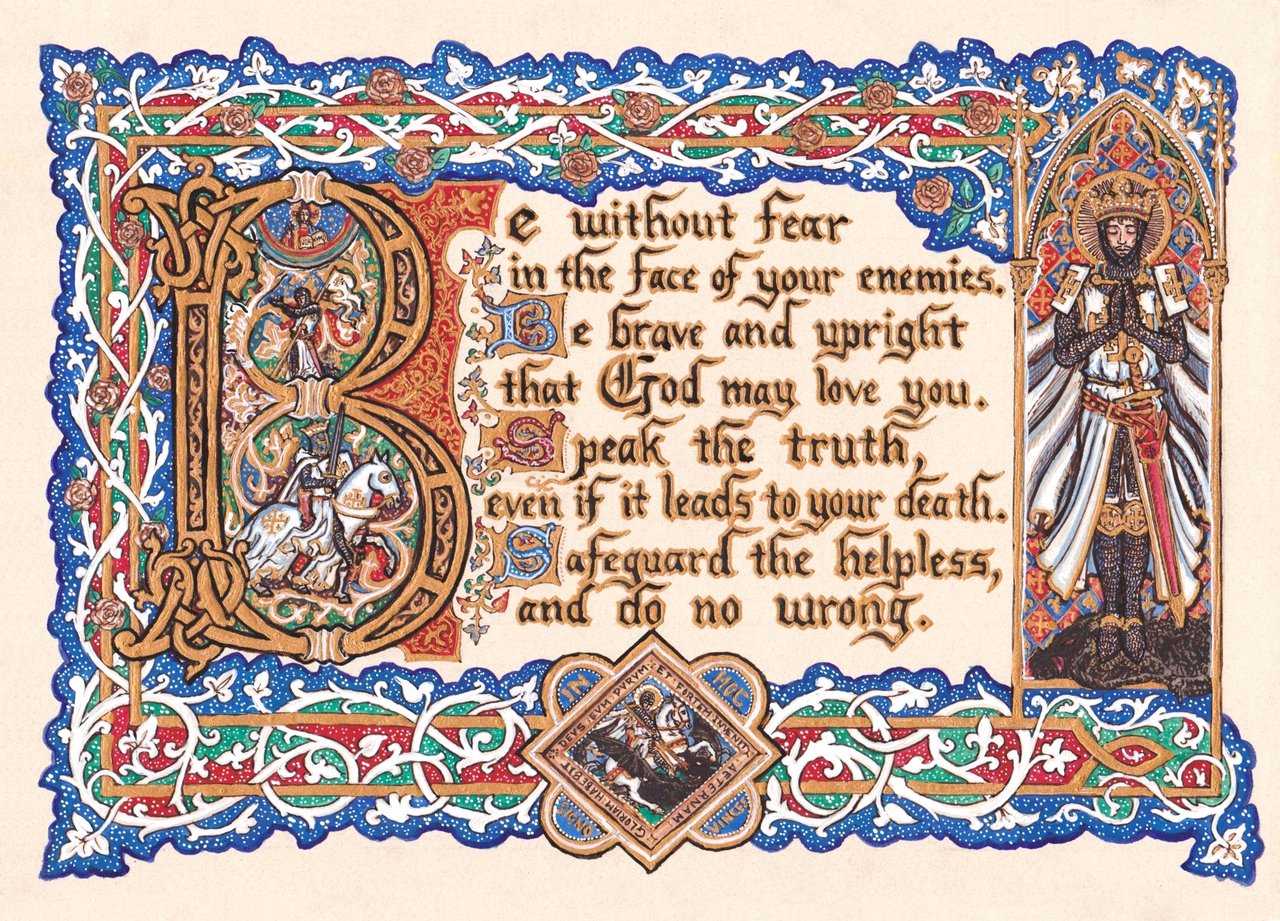 Be without fear
in the face of your enemies.
Be brave and upright
that God may love you.
Speak the truth,
even if it leads to your death.
Safeguard the helpless,
and do no wrong.
IN HOC
DEVS · EVM · PVRVM · ET · FORTEM · INVENIT
AETERNAM
GLORIAM